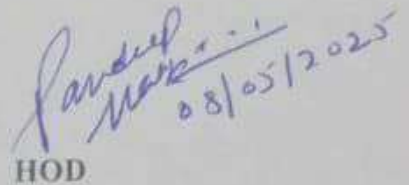 Pardeep
08/05/2025
HOD